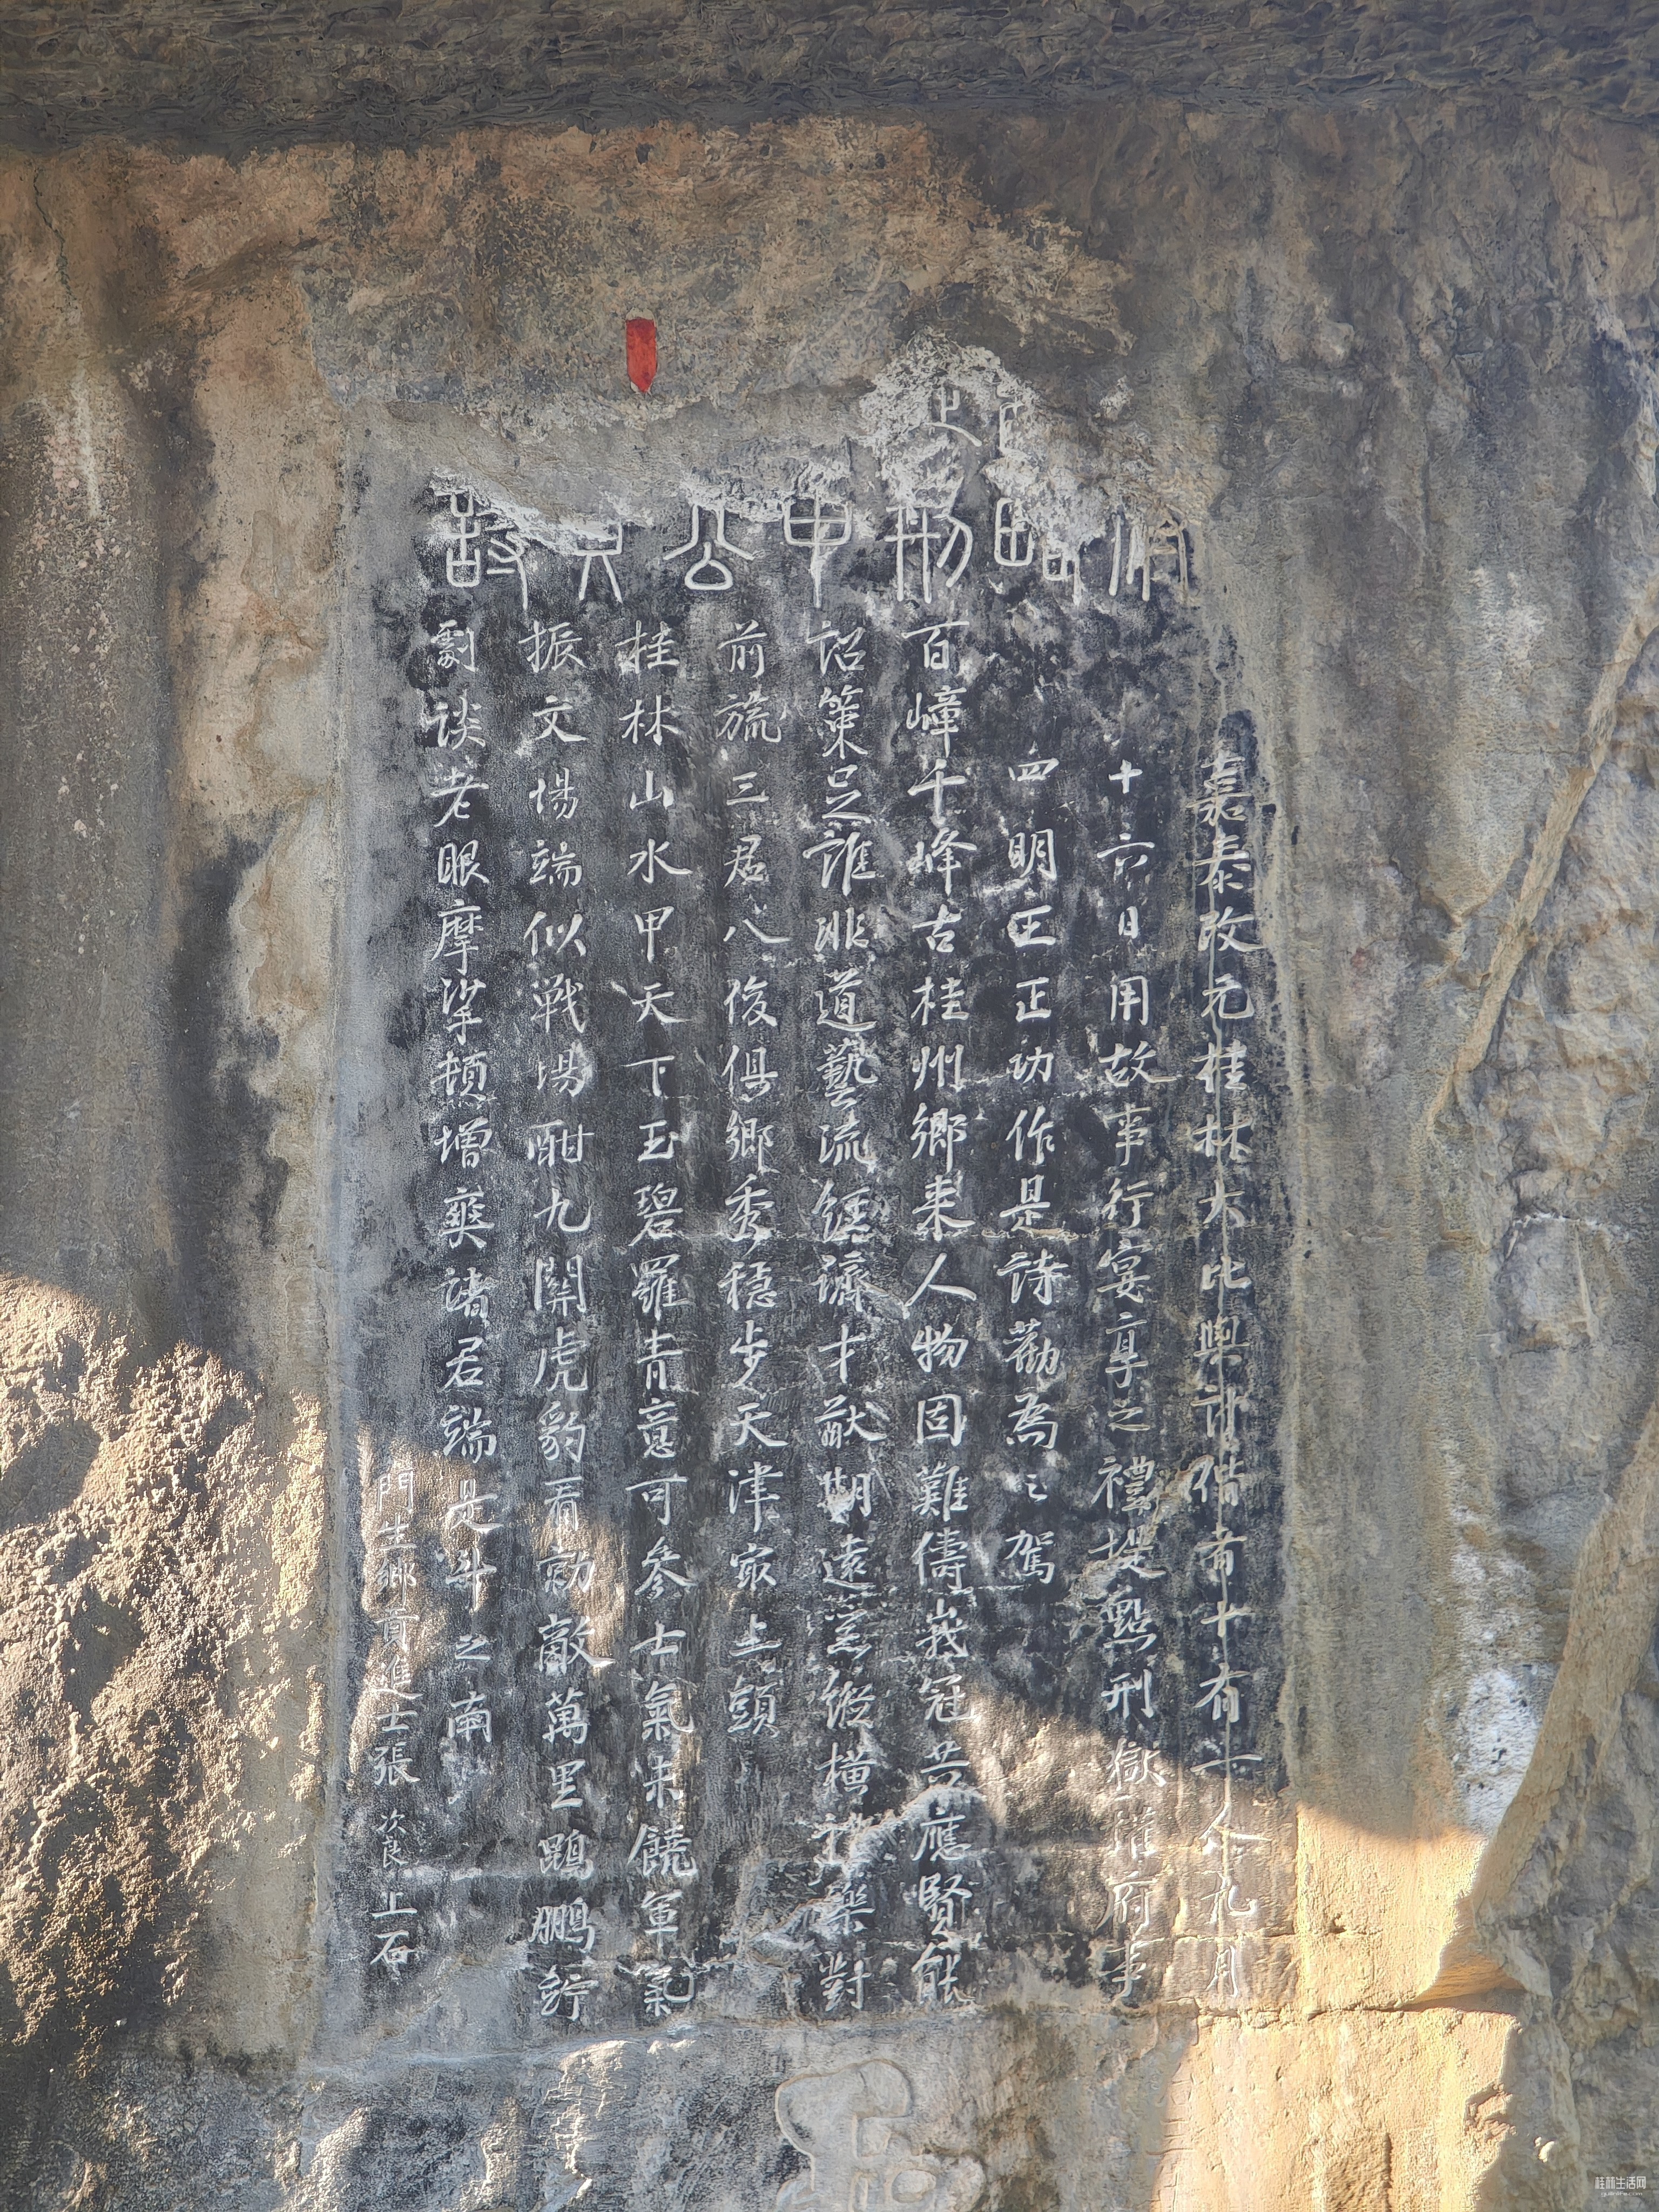 嘉泰改元桂林大比與計偕者十有一人九月
十六日用故事行宴享之禮提點刑獄權府事
四明王正功作是詩勸為之駕
百嶂千峰古桂州鄉来人物固難儔峩冠共應賢能
詔策足誰非道藝流經濟才猷期遠業縱橫禮樂對
前旒三君八俊俱鄉秀穩步天津最上頭
桂林山水甲天下玉碧羅青意可參士氣未饒軍氣
振文場端似戰場酣九關虎豹看勍敵萬里鵾鵬佇
劇談老眼摩挲頓增爽諸君端是斗之南
門生鄉貢進士張次良上石
桂林生活网